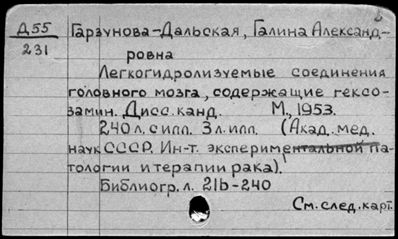 Д55 Гарзунова-Дальская, Галина Александ-
231 ровна
Легкогидролизуемые соединения
головного мозга, содержащие гексо-
замин. Дисс. канд. М., 1953.
240 л. с илл. 3 л. илл. (Акад. мед.
наук СССР. Ин-т. экспериментальной па-
тологии и терапии рака).
Библиогр. л. 216-240
См. след. карт.